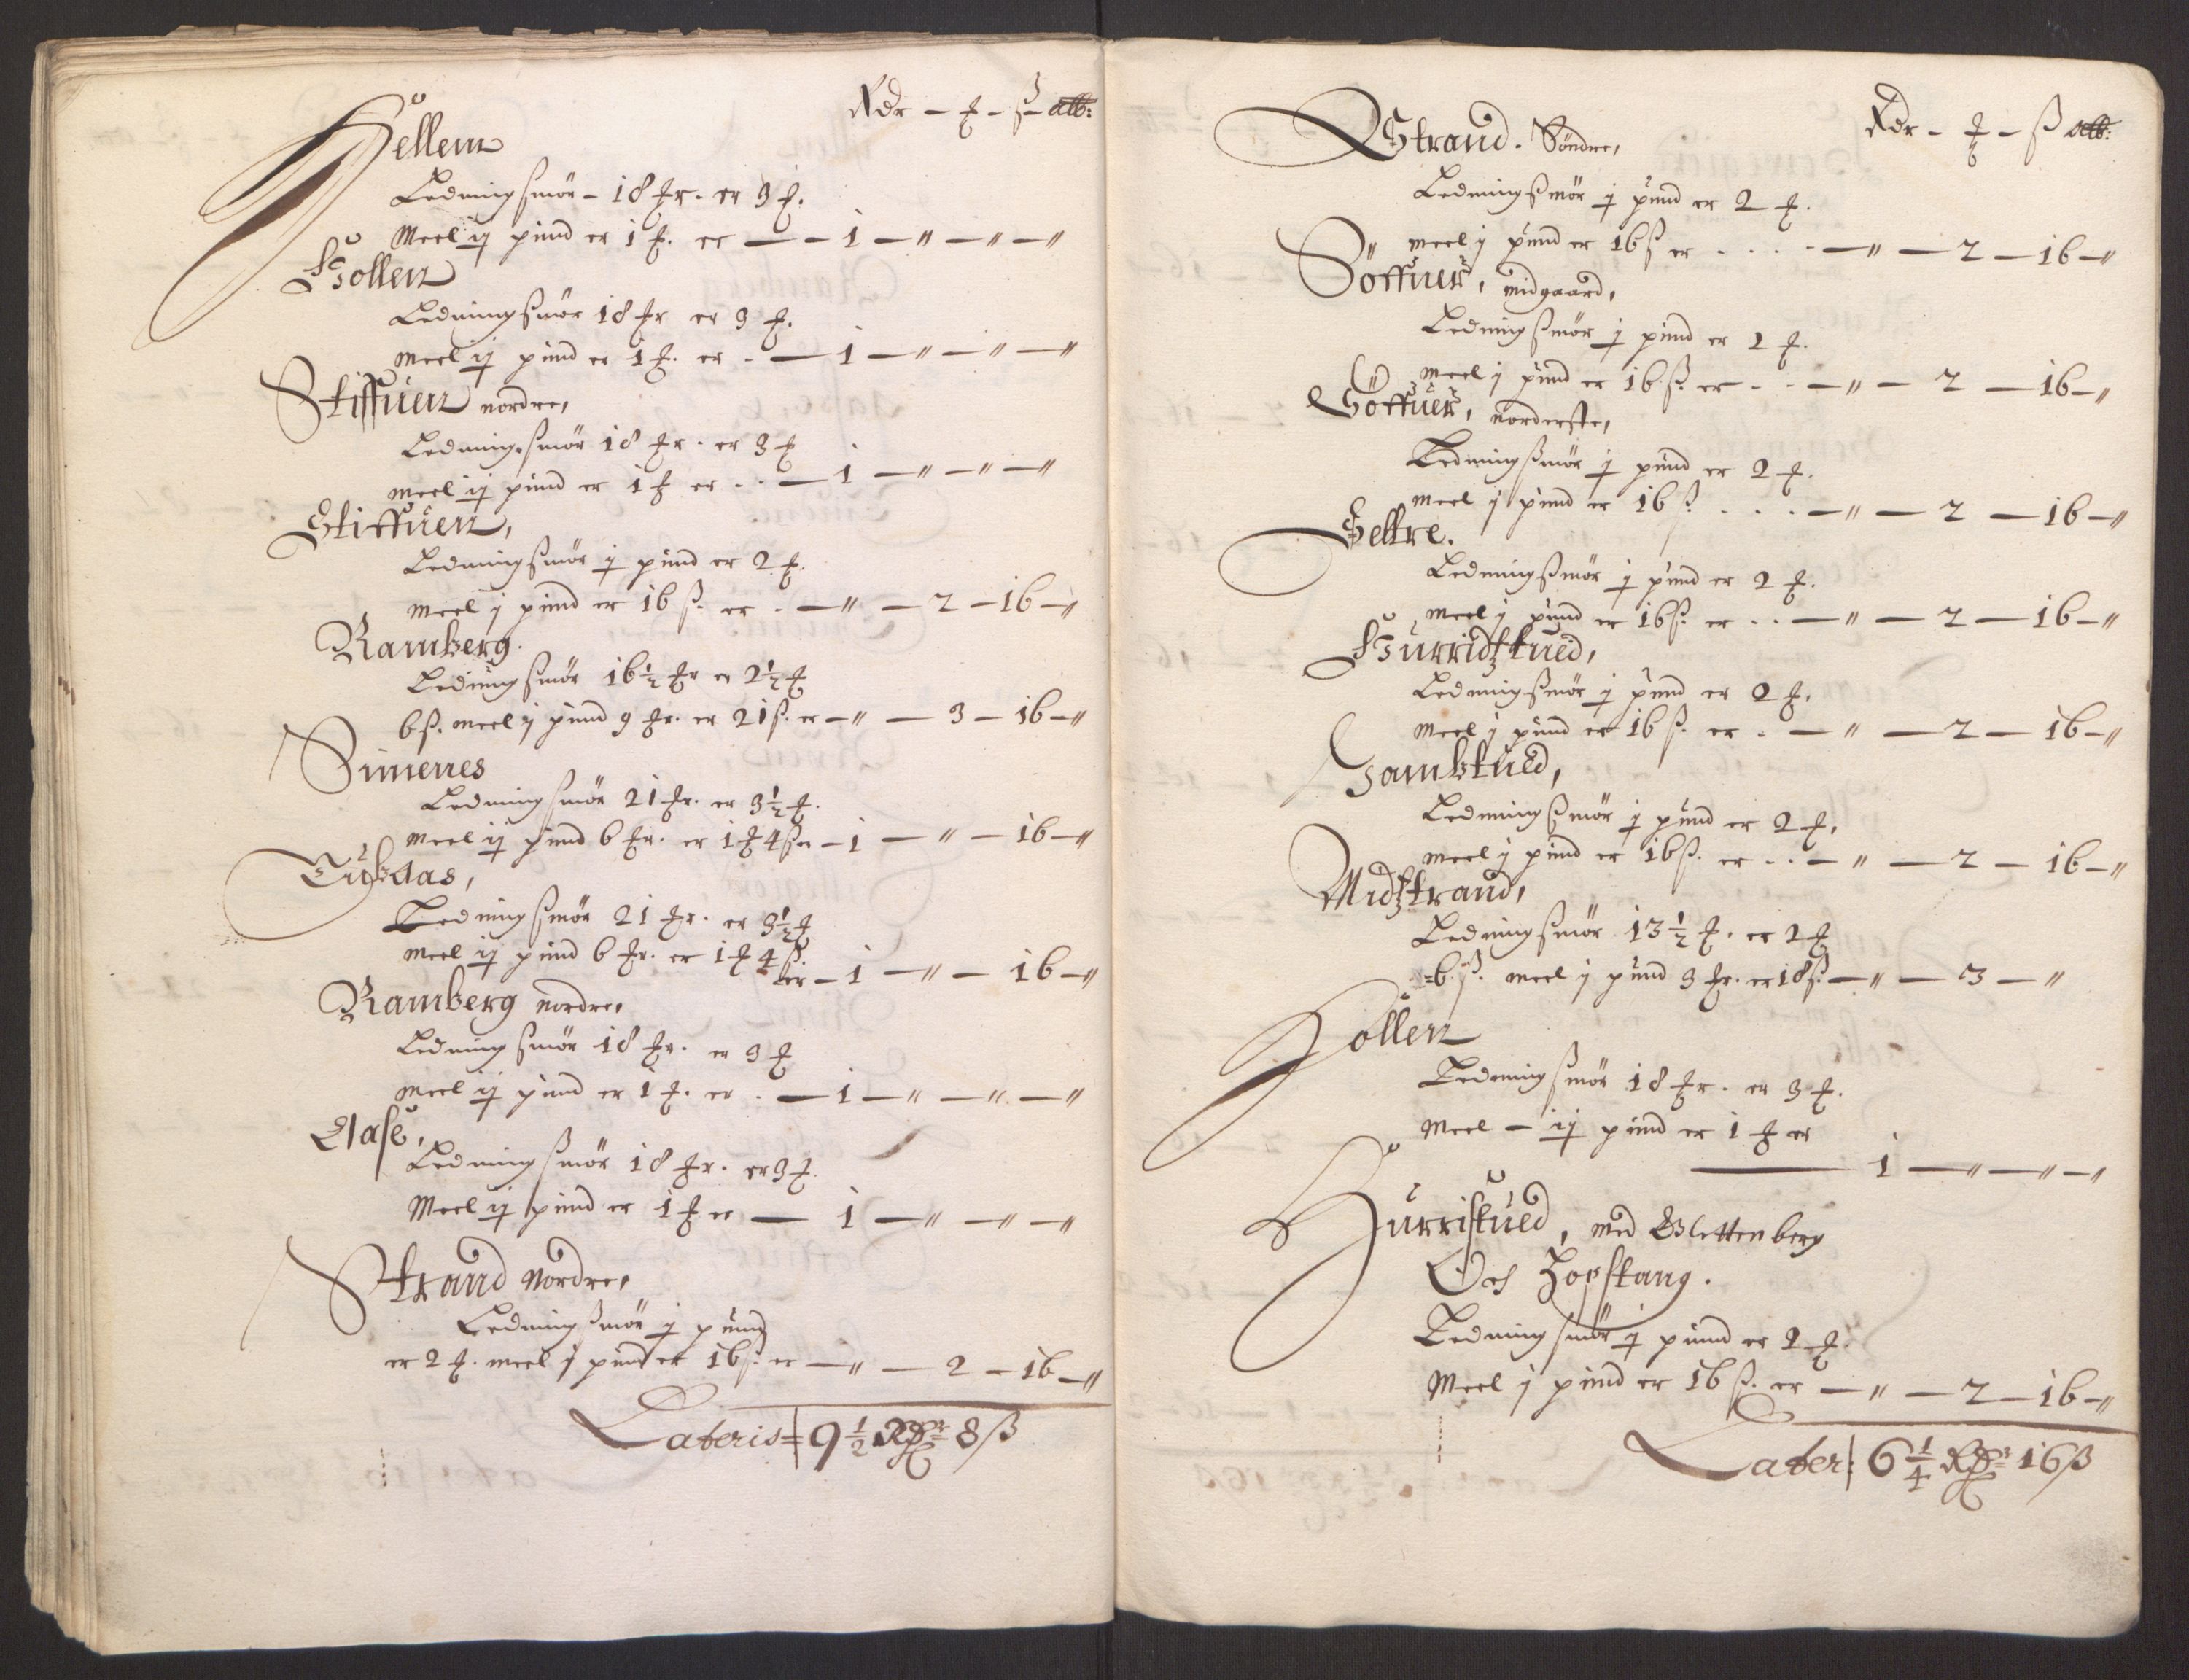 Rdr – ℔ – ß – alb:
Hellem
Ledning smör – 18 ℔r. er 3 ℔.
Meel ij pund er 1 ℔. er — – 1 – " – " – "
Hollen
Ledning smör 18 ℔r er 3 ℔.
meel ij pund er 1 ℔. er – — 1 – " – " – "
Stiffuen nordre,
Ledning smör 18 ℔r. er 3 ℔
meel ij pund er 1 ℔ er . . — 1 – " – " – "
Stiffuen,
Ledning smör j pund er 2 ℔.
meel j pund er 16 ß. er . – " – 2 – 16 – "
Ramberg.
Ledning smör 16½ ℔r er 2½ ℔
6 ß. meel j pund 9 ℔r. er 21 ß. er – " – 3 – 16 – "
Simenes
Ledning smör 21 ℔r. er 3½ ℔.
meel ij pund 6 ℔r. er 1 ℔ 4 ß er – 1 – " – 16 – "
Ledning smör 21 ℔r. er 3½ ℔
meel ij pund 6 ℔r. er 1 ℔ 4 ß.
er – 1 – " – 16 – "
Ramberg nordre,
Ledning smör 18 ℔r. er 3 ℔
meel ij pund er 1 ℔. er . — 1 – " – " – "
Aase,
Ledning smör 18 ℔r. er 3 ℔.
Meel ij pund er 1 ℔ er — 1 – " – " – "
Strand Nordre,
Ledning smör j pund
er 2 ℔. meel j pund er 16 ß. er – " – 2 – 16 – "
Lateris = 9½ Rdr 8 ß
Rdr – ℔ – ß alb:
Strand. Söndre,
Ledning smör j pund er 2 ℔.
meel j pund er 16 ß er . . . . – " – 2 – 16 – "
Söffuer, midgaard,
Ledning smör j pund er 2 ℔.
meel j pund er 16 ß. er . . – " – 2 – 16 – "
Söffuer, norderste,
Ledning smör j pund er 2 ℔.
meel j pund er 16 ß. . . . – " – 2 – 16 – "
Settre.
Ledning smör j pund er 2 ℔.
meel j pund er 16 ß. er . . – " – 2 – 16 – "
Hurridzkued,
Ledning smör j pund er 2 ℔.
meel j pund er 16 ß. er . – " – 2 – 16 – "
Hambkued,
Ledning smör j pund er 2 ℔.
meel j pund er 16 ß. er . . – " – 2 – 16 – "
Midzstrand,
Ledning smör 13½ ℔. er 2 ℔
6 ß. meel j pund 3 ℔r. er 18 ß. – " – 3 – "
Hollen
Ledning smör 18 ℔r. er 3 ℔.
Meel – ij pund er 1 ℔ er
— 1 – " – " – "
Hurriskued, med Blettenberg
Och Hopstang.
Ledning smör j pund er 2 ℔
Meel j pund er 16 ß. er – " – 2 – 16 – "
Later: 6¼ Rdr 16 ß